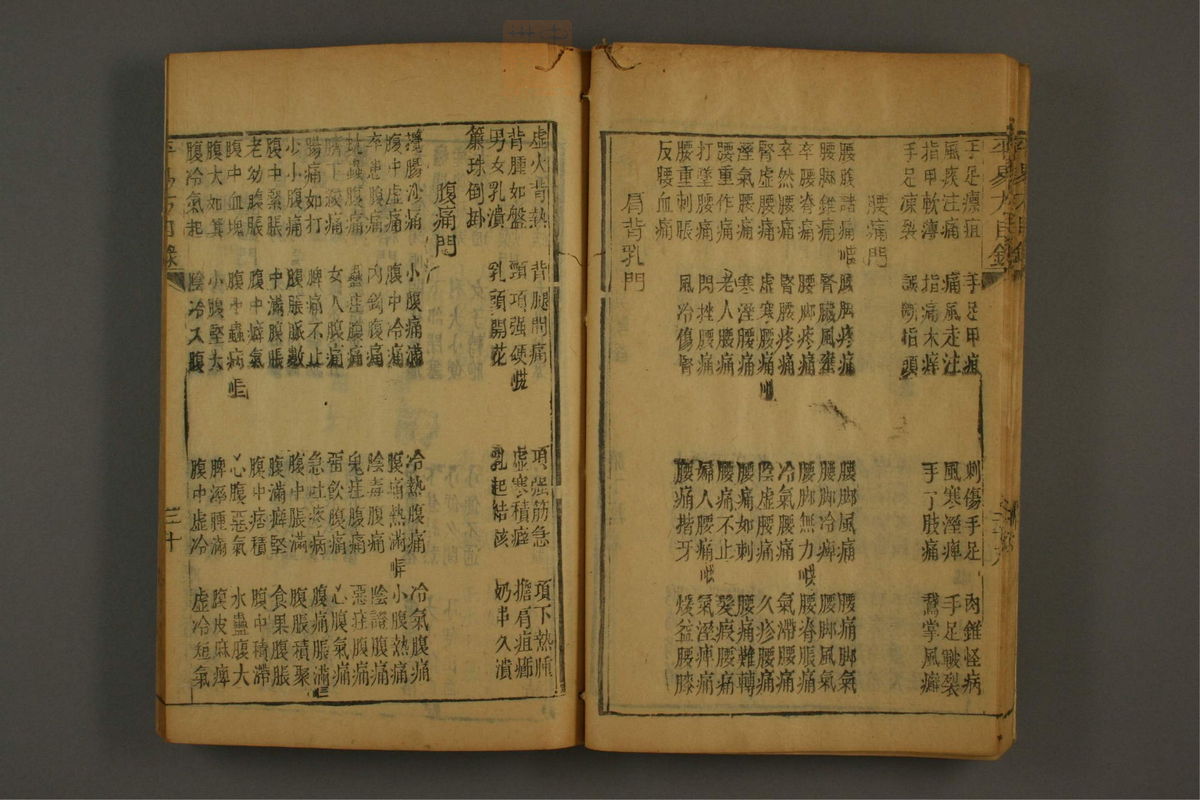 手足瘭疽 手足甲疽 刺傷手足 肉錐怪病
風疾注痛 痛風走注 風寒溼痺 手足皸裂
指甲軟薄 指痛木痒 手丫肢痛 鵞掌風癬
手足凍裂 誤斷指頭
腰痛門
腰腹諸痛 腰脚疼痛 腰脚風痛 腰痛脚氣
腰脚錐痛 腎臟風癱 腰脚冷痺 腰脚風氣
卒腰脊痛 腰脚疼痛 腰脚無力 腰脊脹痛
卒然腰痛 腎腰疼痛 冷氣腰痛 氣滯腰痛
腎虛腰痛 虛寒腰痛 陰虛腰痛 久疹腰痛
溼氣腰痛 寒溼腰痛 腰痛如刺 腰痛難轉
腰重作痛 老人腰痛 腰痛不止 髮瘕腰痛
打墜腰痛 閃挫腰痛 婦人腰痛 氣溼痺痛
腰重刺脹 風冷傷腎 腰痛揩牙 煖益腰膝
反腰血痛
肩背乳門
虛火背熱 背腿間痛 項强筋急 項下熱腫
背腫如盤 頸項强硬 虛寒積癖 擔肩疽癤
男女乳潰 乳頭開花 乳起結核 奶串久潰
簾珠倒掛
腹痛門
攪腸沙痛 小腹痛滿 冷熱腹痛 冷氣腹痛
腹中虛痛 腹中冷痛 腹痛熱滿 小腹熱痛
卒患腹痛 內釣腹痛 陰毒腹痛 陰證腹痛
蚘蟲腹痛 蠱疰腹痛 鬼疰腹痛 惡疰腹痛
臍下腹痛 女人腹痛 畱飲腹痛 心腹氣痛
腸痛如打 脾痛不止 急疰疼病 腹痛脹滿
小小腹痛 腹脹脈數 腹中脹滿 腹脹積聚
腹中緊脹 中滿腹脹 腹滿癖堅 食果腹脹
老幼腹脹 腹中癖氣 腹中痞積 腹中積滯
腹中血塊 腹中蟲病 心腹惡氣 水蠱腹大
腹大如箕 小腹堅大 脾溼腫滿 腹皮麻痺
腹冷氣起 陰冷入腹 腹中虛冷 虛冷短氣
三十